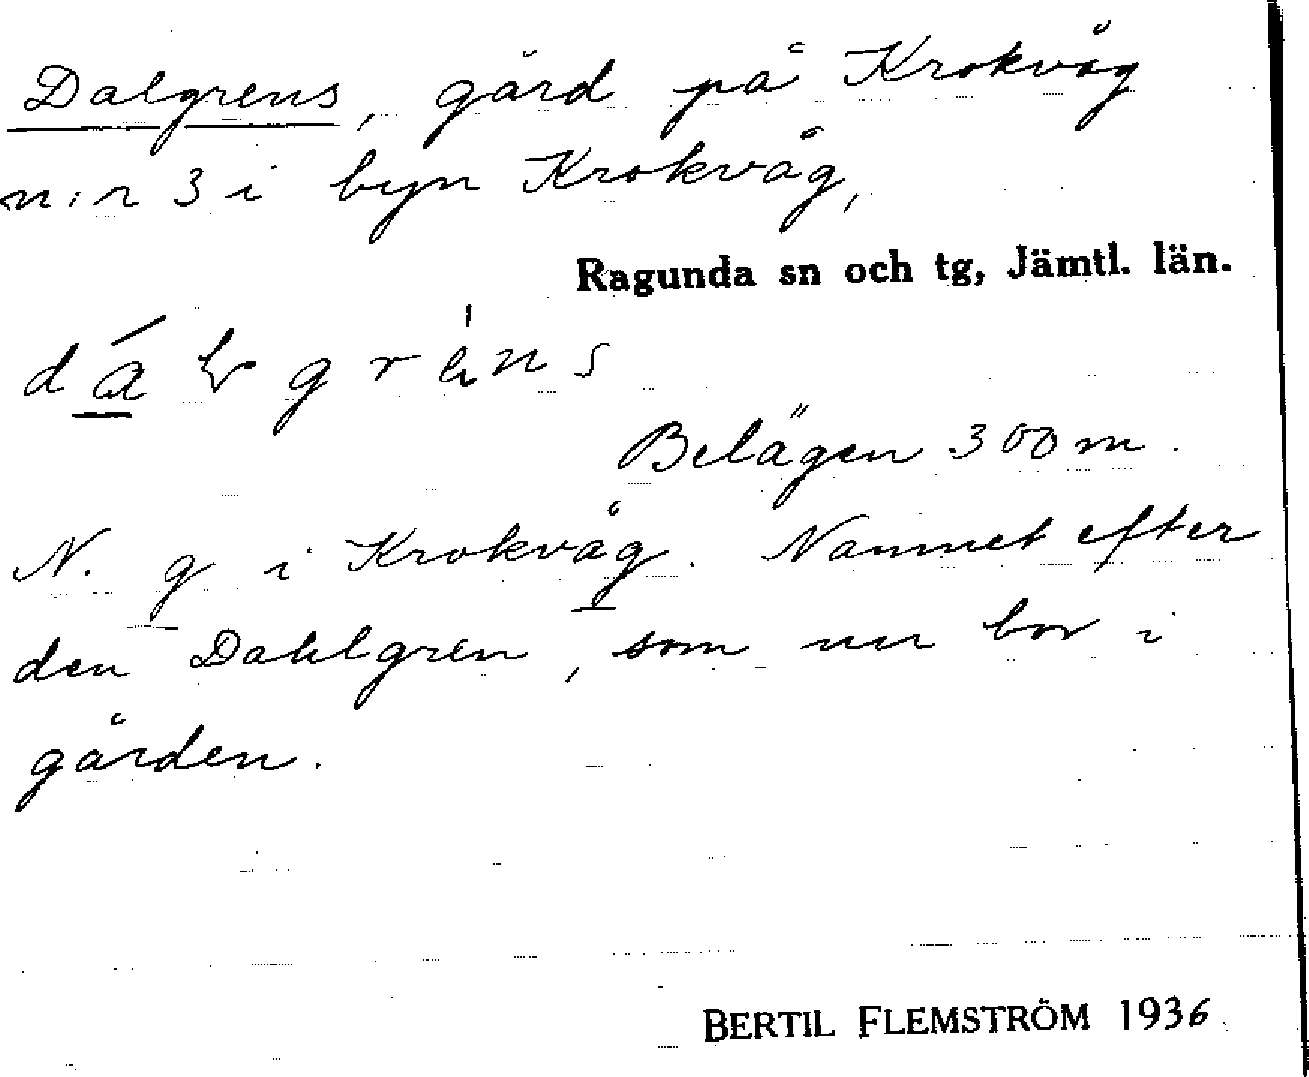 Dalgrens, gård på Krokvåg
n:r 3 i byn Krokvåg,
Ragunda sn och tg, Jämtl. län.
Belägen 300 m.
N. g i Krokvåg. Namnet efter
den Dahlgren, som nu bor i
gården.
BERTIL FLEMSTRÖM 1936